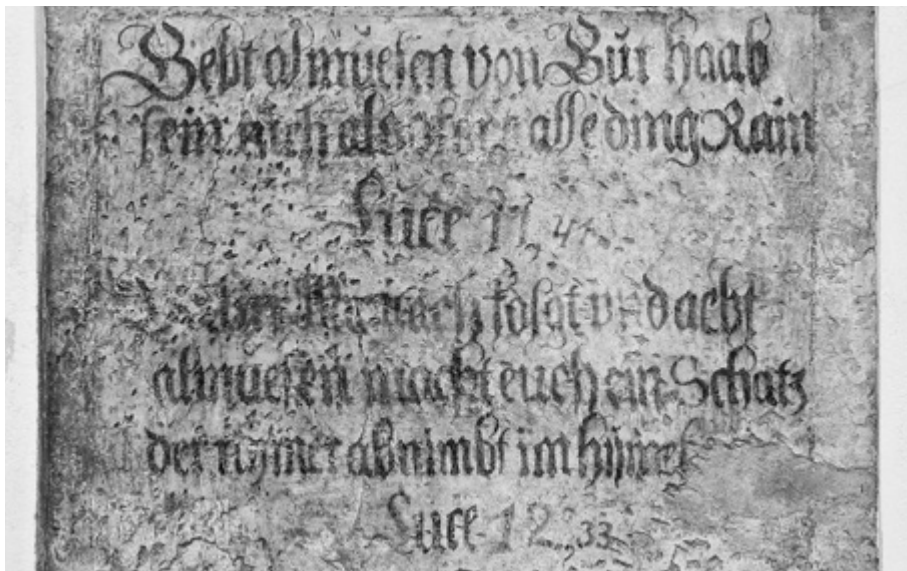 Gebt almuesen von Eür haab
sein Euch als alle ding Rain
Luce 11, 41.
volgt vnd gebt
almuesen macht euch ein Schatz
der nymer abnimbt im hymel
Luce 12, 33